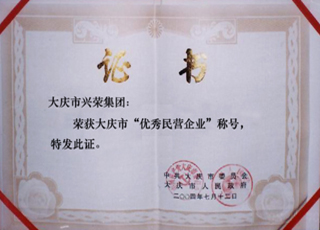 证书
大庆市兴荣集团：
荣获大庆市“优秀民营企业”称号，
特发此证。
中共大庆市委员会
大庆市人民政府
二〇〇四年七月十二日